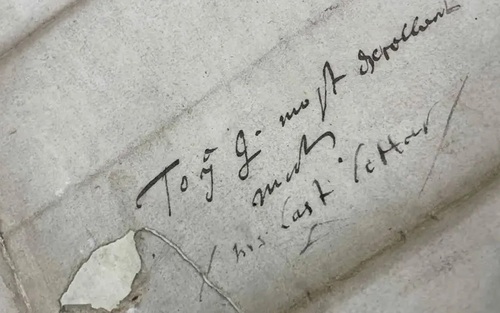 To yͤ Q. most Excellent
matʸ
his last letter